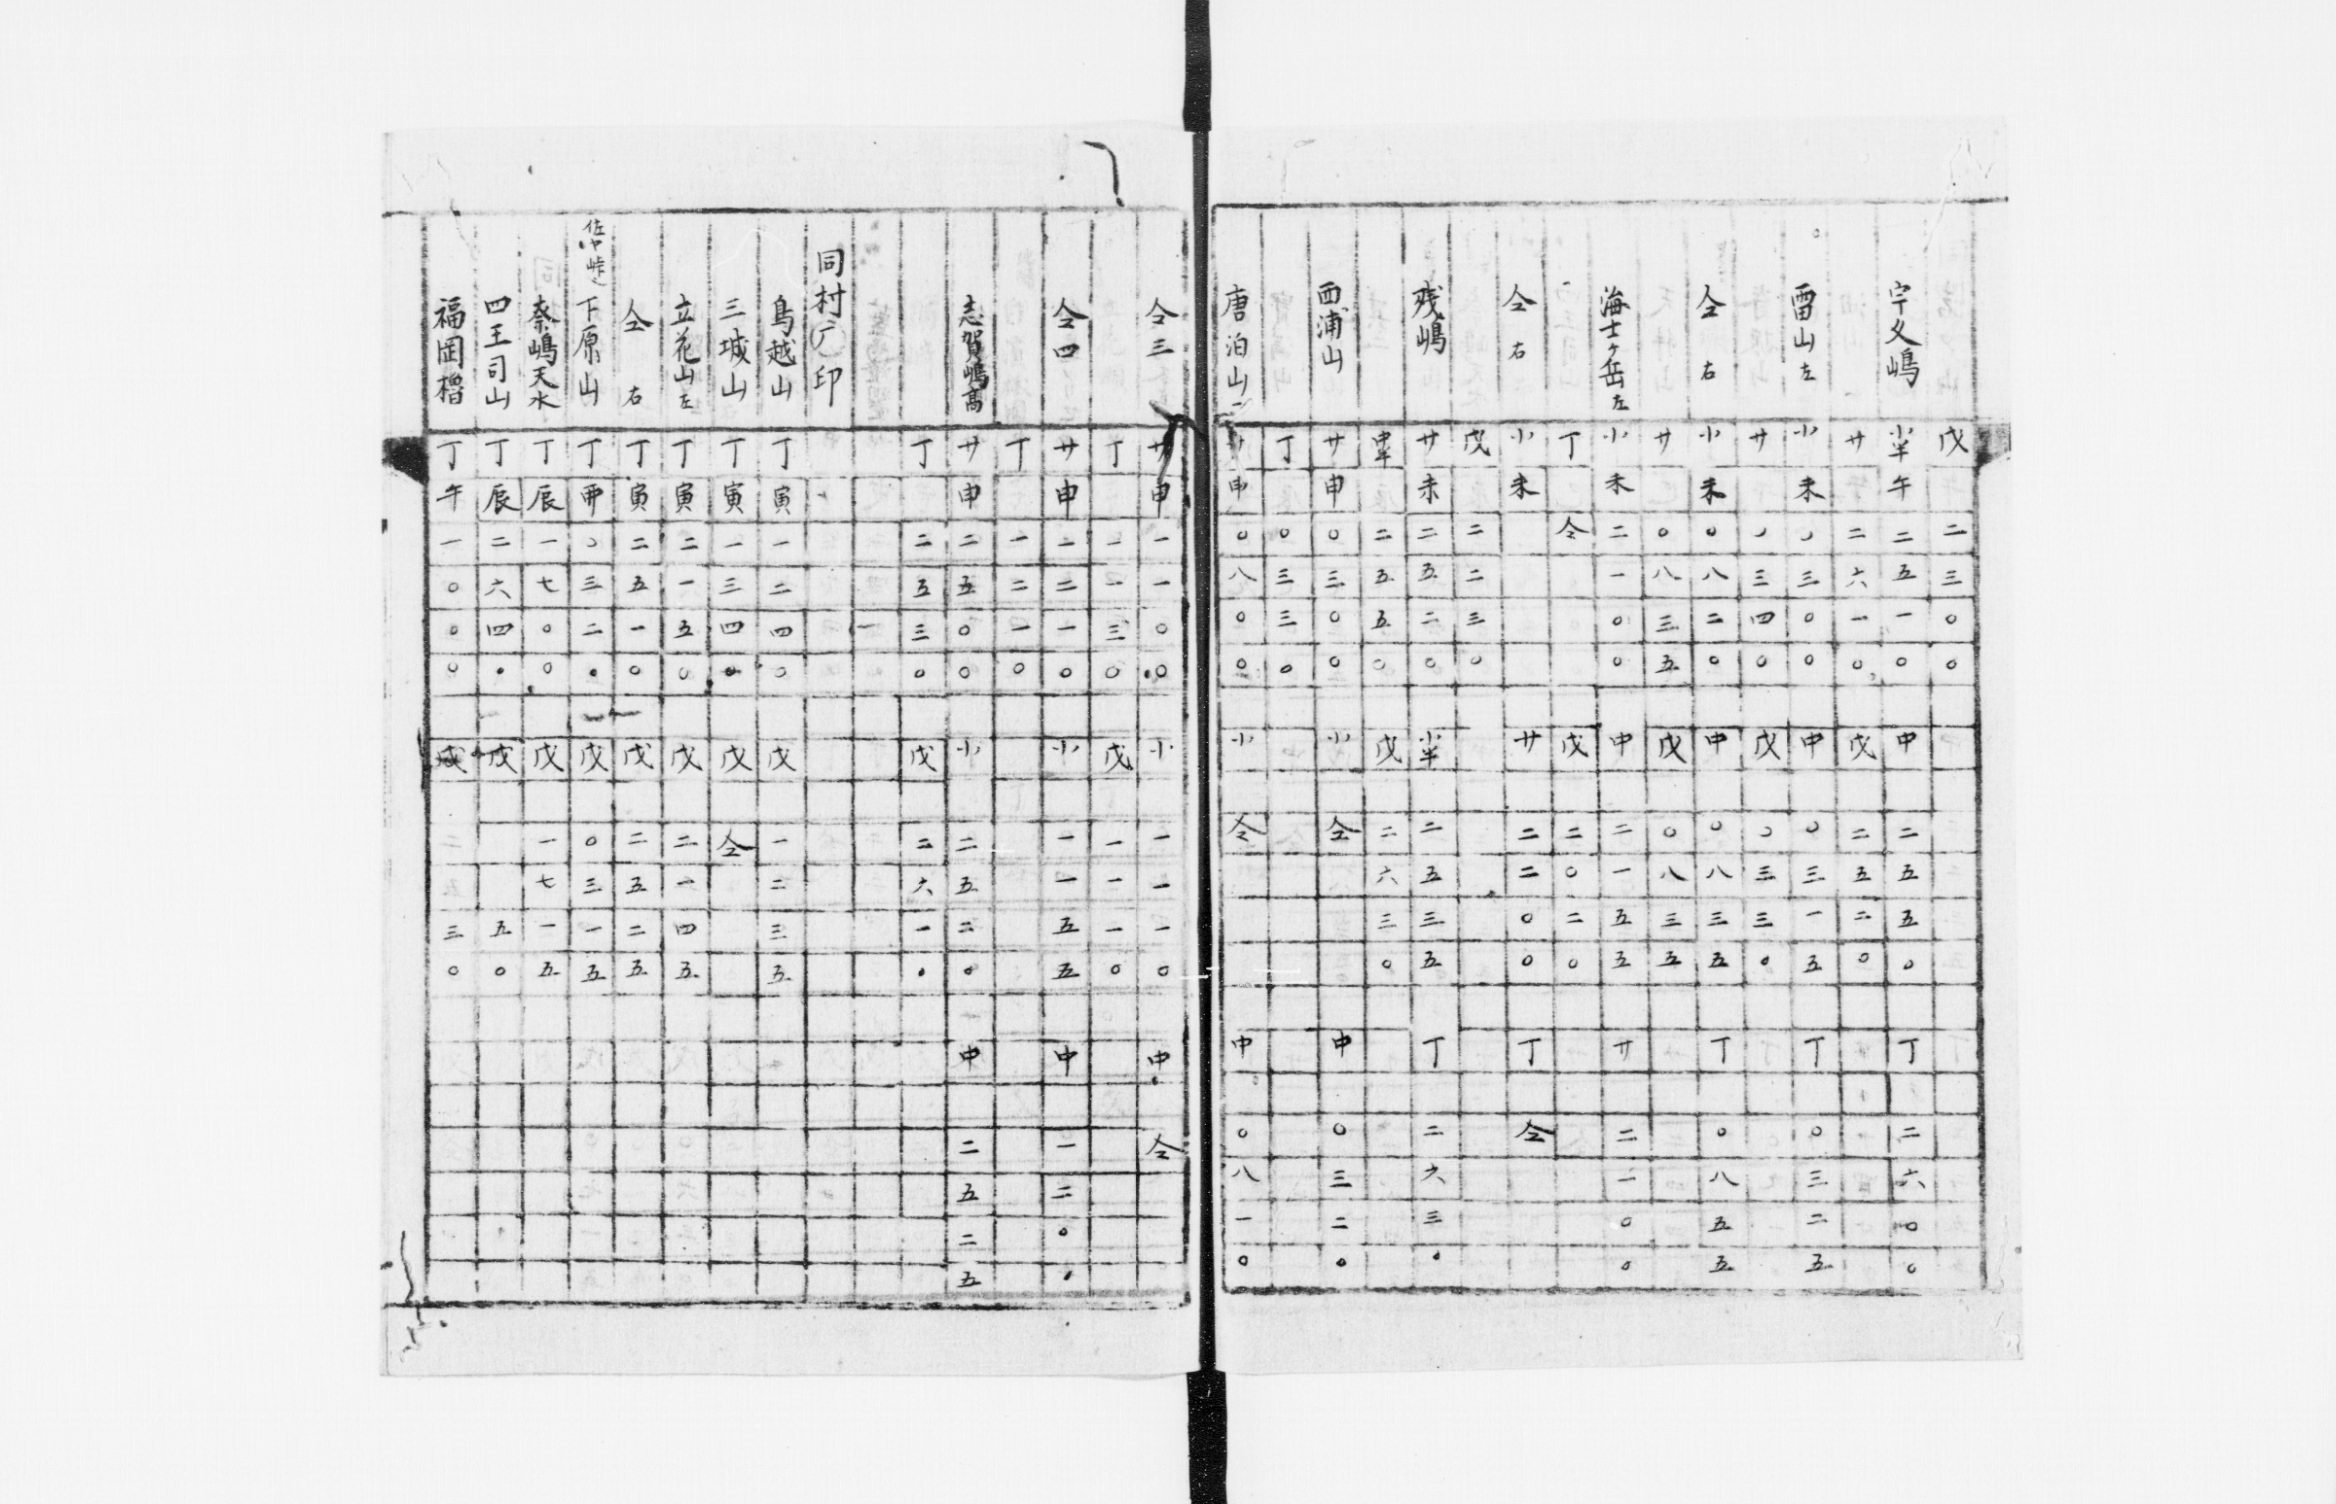 戊 二三〇〇
嶋 小半 午 二五一〇 中 二五五〇 丁 二六〇〇
サ 二六一〇 戊 二五二〇
雷山左 小 未 〇三〇〇 中 〇三一五 丁 〇三二五
サ 〇三四〇 戊 〇三三〇
仝右 小 未 〇八二〇 中 〇八三五 丁 〇八五五
サ 〇八三五 戊 〇八三五
海士ヶ岳左 小 未 二一〇〇 中 二一五五 サ 二一〇〇
丁 仝 戊 二〇二〇
仝右 小 未 サ 二二〇〇 丁 仝
戊 二二三〇
残嶋 サ 未 二五二〇 小半 二五三五 丁 二六三〇
中半 二五五〇 戊 二六三〇
西浦山 サ 申 〇三〇〇 小 仝 中 〇三二〇
丁 〇三三〇
唐泊山二 サ 申 〇八〇〇 小 仝 中 〇八一〇
仝三 サ 申 一一〇〇 小 一一一〇 中 仝
丁 一一三〇 戊 一一一〇
仝四 サ 申 一二一〇 小 一一五五 中 一二〇〇
丁 一二一〇
志賀嶋高 サ 申 二五〇〇 小 二五二〇 中 二五二五
丁 二五三〇 戊 二六一〇
同村 印
鳥越山 丁 寅 一二四〇 戊 一二三五
三城山 丁 寅 一三四〇 戊 仝
立花山左 丁 寅 二一五〇 戊 二一四五
仝右 丁 寅 二五一〇 戊 二五二五
下原山 丁 卯 〇三二〇 戊 〇三一五
奈嶋天水 丁 辰 一七〇〇 戊 一七一五
四王司山 丁 辰 二六四〇 戊 五〇
福岡櫓 丁 午 一〇〇〇 戊 三〇